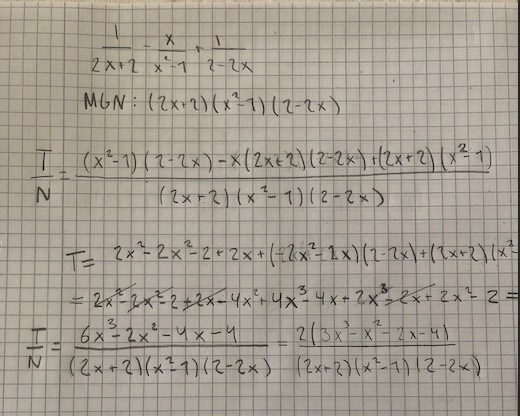 1/(2x+2) - x/(x²-1) + 1/(2-2x)
MGN: (2x+2)(x²-1)(2-2x)
T/N = ((x²-1)(2-2x) - x(2x+2)(2-2x) + (2x+2)(x²-1))/((2x+2)(x²-1)(2-2x))
T = 2x² - 2x² - 2 + 2x + (-2x² - 2x)(2-2x) + (2x+2)(x²-
= 2x² - 2x² - 2 + 2x - 4x² + 4x³ - 4x + 2x³ - 2x + 2x² - 2 =
T/N = (6x³ - 2x² - 4x - 4)/((2x+2)(x²-1)(2-2x)) = 2(3x³ - x² - 2x - 4)/((2x+2)(x²-1)(2-2x))